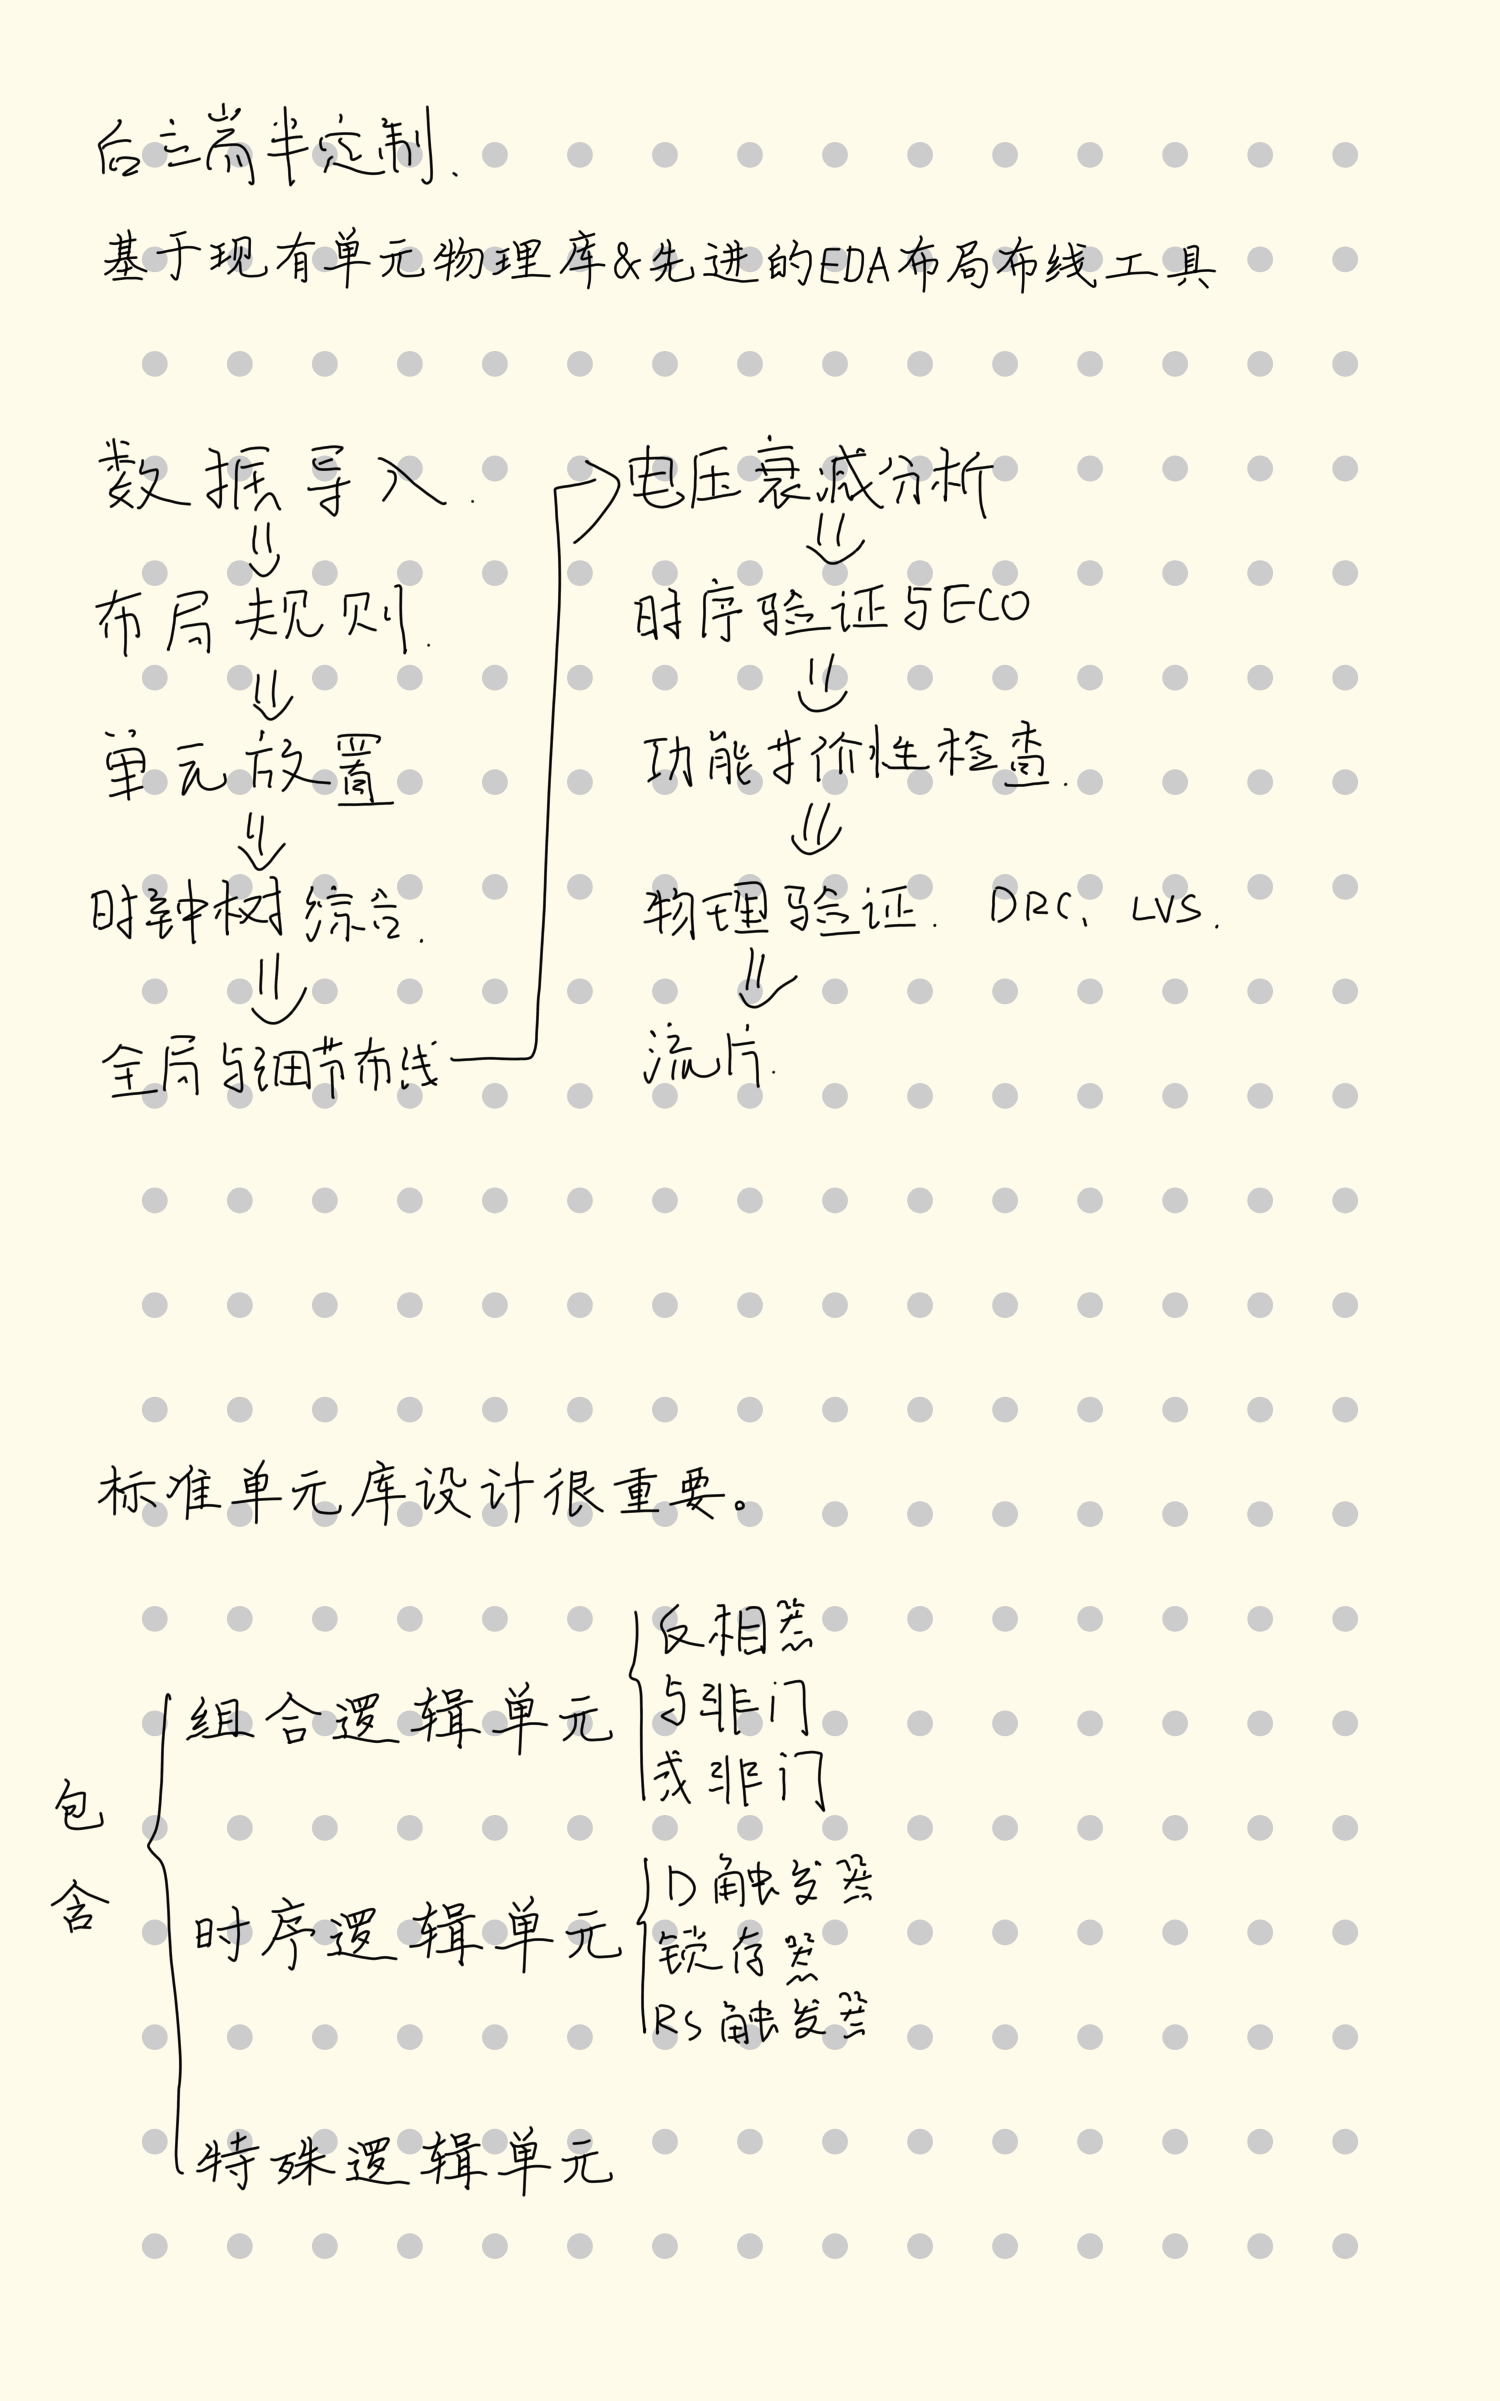 后端半定制.
基于现有单元物理库&先进的EDA布局布线工具
数据导入.
布局规则.
单元放置
时钟树综合.
全局与细节布线
电压衰减分析
时序验证与ECO
功能等价性检查.
物理验证. DRC、LVS.
流片.
标准单元库设计很重要。
包含
组合逻辑单元
反相器
与非门
或非门
时序逻辑单元
D触发器
锁存器
RS触发器
特殊逻辑单元